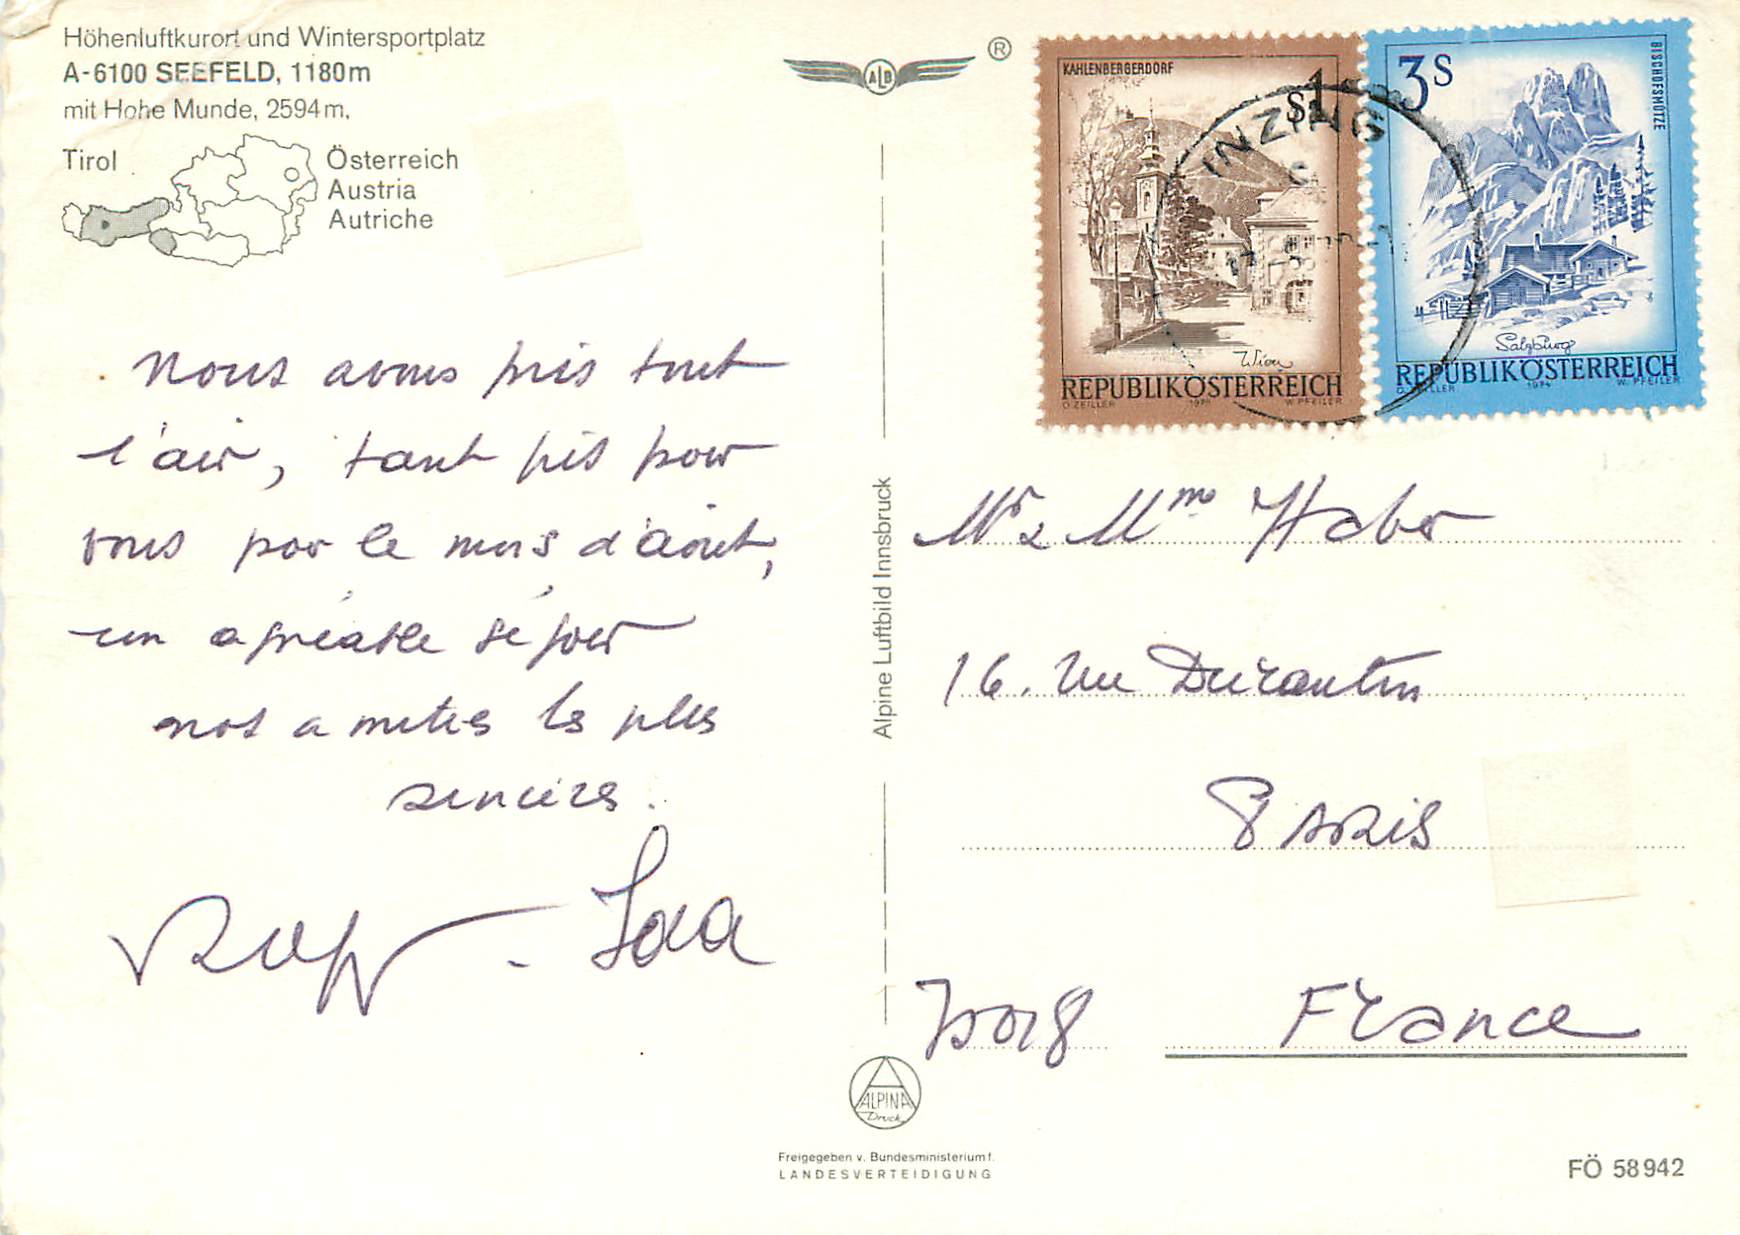 Höhenluftkurort und Wintersportplatz
A-6100 SEEFELD, 1180m
mit Hohe Munde, 2594m,
Tirol
Österreich
Austria
Autriche
ALB
®
KAHLENBERGERDORF
S1
Wien
REPUBLIK ÖSTERREICH
O. ZEILLER
W. PFEILER
3S
BISCHOFSMÜTZE
Salzburg
REPUBLIK ÖSTERREICH
O. ZEILLER 1974 W. PFEILER
INZING
Nous avons pris tout
l'air, tant pis pour
vous par le mois d'août,
un agréable séjour
nos amitiés les plus
sincères.
Ida
Alpine Luftbild Innsbruck
Mr & Mme Haber
16. rue Durantin
PARIS
75018 France
ALPINA
Druck
Freigegeben v. Bundesministerium f.
LANDESVERTEIDIGUNG
FÖ 58942